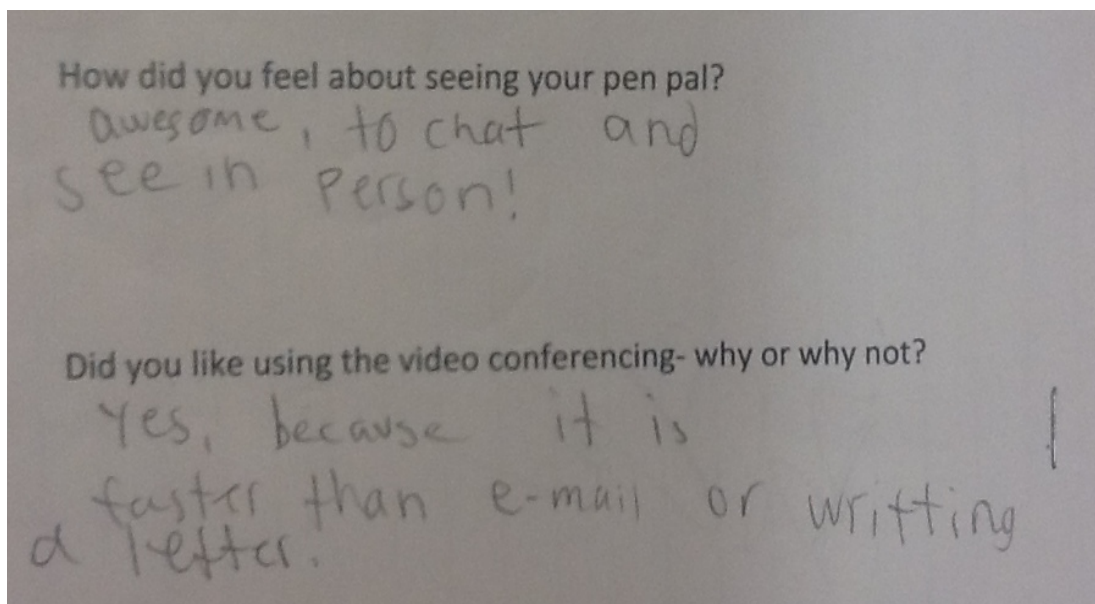 How did you feel about seeing your pen pal?
awesome, to chat and
see in person!
Did you like using the video conferencing- why or why not?
Yes, because it is
faster than e-mail or writting
a letter.